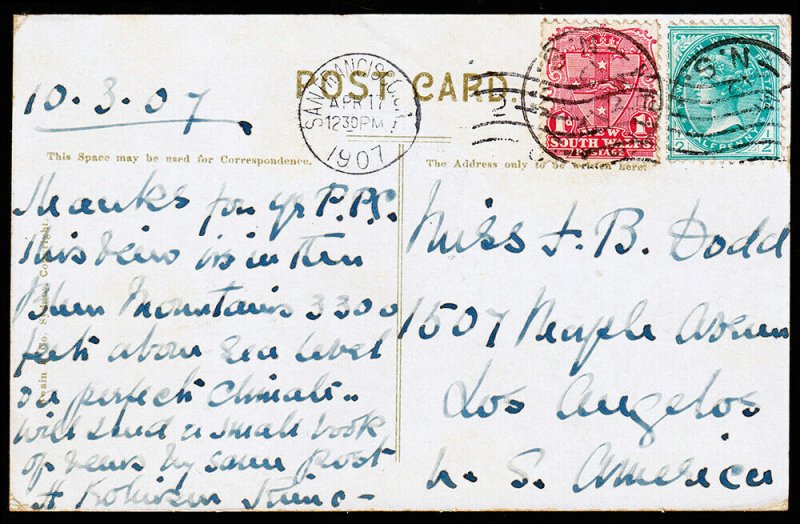 POST CARD.
SAN FRANCISCO, CAL.
APR 11
1230 PM
1907
N.S.W
1d 1d
N S W
SOUTH WALES
POSTAGE
N.S.W
HALFPENNY
10.3.07.
This Space may be used for Correspondence.
The Address only to be written here.
Thanks for yr P.P.C.
This view is in the
Blue Mountains 3300
feet above Sea level
a perfect Climate.
will send a small book
of views by same post
A Robinson
Swain & Co. Sydney Copyright.
Miss F. B. Dodd
1507 Maple Avenue
Los Angelos
U. S. America